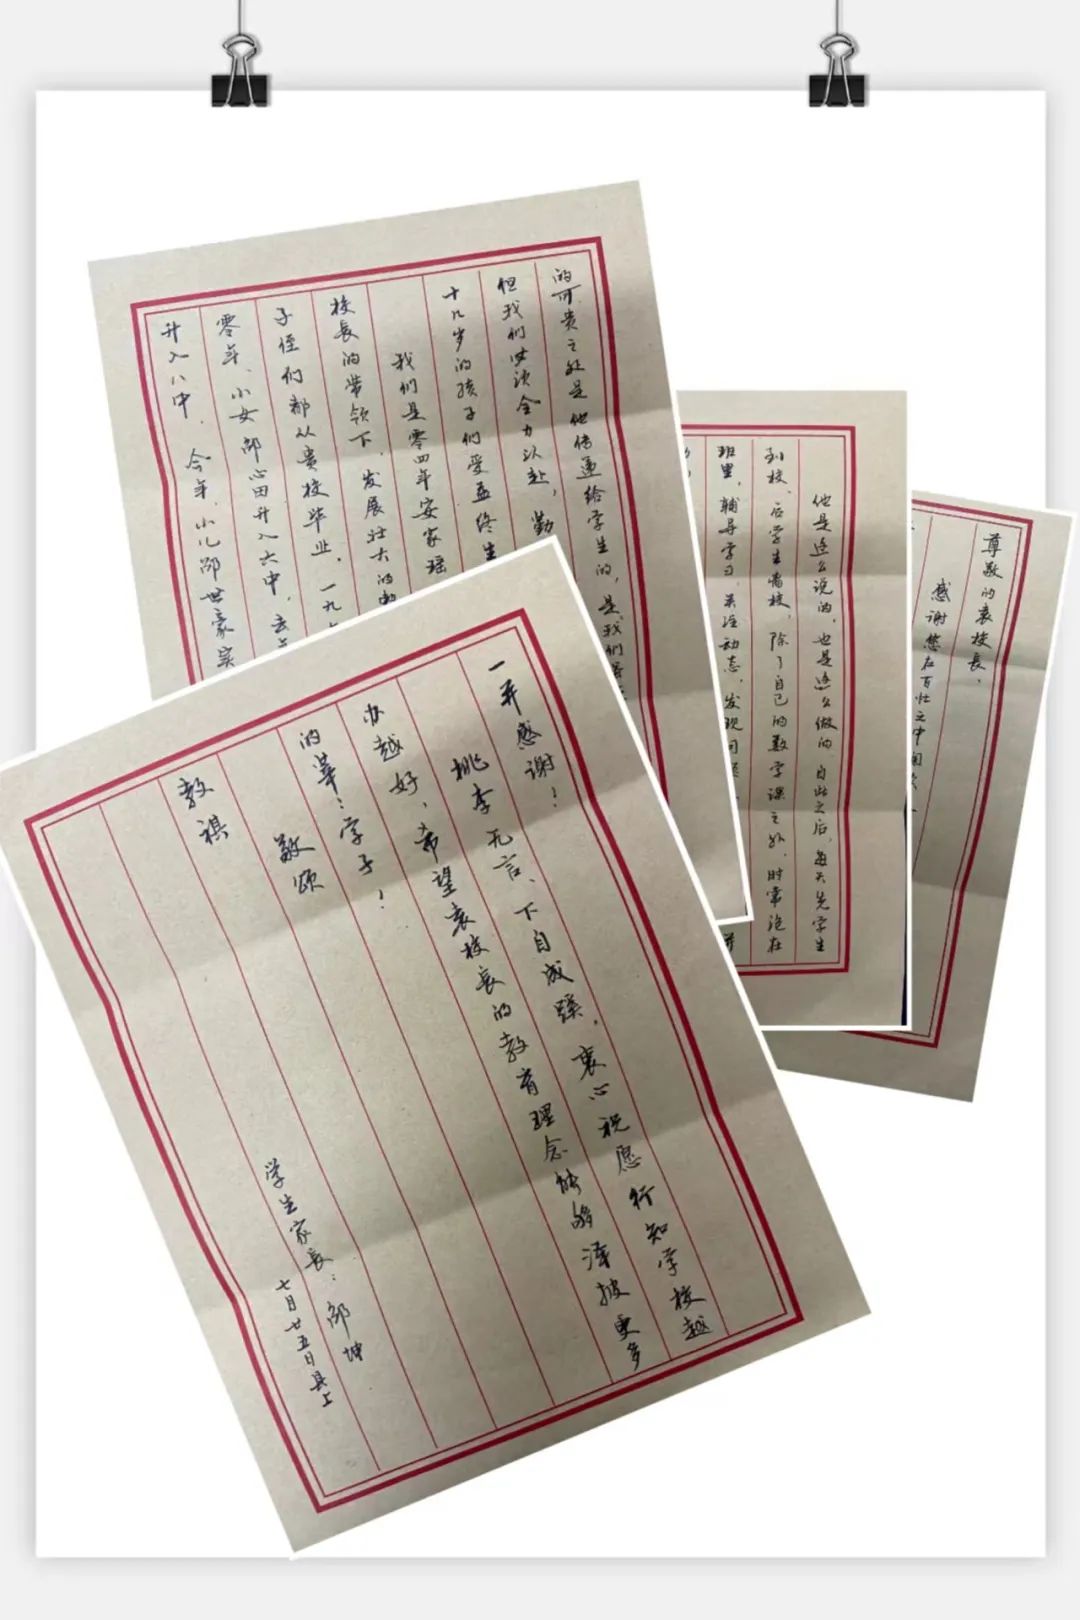 尊敬的袁校长:
感谢您在百忙之中
他是这么说的,也是这么做的,自此之后,每天先学生
到校、后学生离校,除了自己的数学课之外,时常泡在
班里,辅导学习、关注动态、发现问题
的可贵之处是他传递给学生的,是我们
但我们必须全力以赴,勤
十几岁的孩子们受益终生
我们是零四年安家瑶
校长的带领下,发展壮大的
子侄们都从贵校毕业,一九
零年,小女邵心田升入六中,去
升入八中,今年,小儿邵世豪
一并感谢!
桃李无言、下自成蹊,衷心祝愿行知学校越
办越好,希望袁校长的教育理念能够泽披更多
的莘莘学子!
敬颂
教祺
学生家长:邵坤
七月廿五日晨上